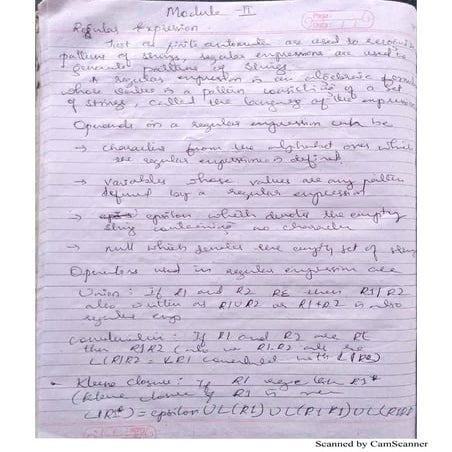 Module - II
Regular Expression
Just as finite automata are used to recognize
patterns of strings, regular expressions are used to
generate patterns of strings
A regular expression is an algebraic formula
whose value is a pattern consisting of a set
of strings, called the language of the expression
Operands in a regular expression can be
→ characters from the alphabet over which
the regular expression is defined
→ variables whose values are any pattern
defined by a regular expression
→ epsilon which denotes the empty
string containing no character
→ null which denotes the empty set of string
Operators used in regular expression are
Union : If R1 and R2 RE then R1/R2
also written as R1UR2 or R1+R2 is also
regular exp
If R1 and R2 are RE
then R1R2 also
L(R1R2 =
• Kleene closure : If R1 R1*
(kleene closure of R1 is
L(R1*) = epsilon U L(R1) U L(R1R1) U L(R1R1
Scanned by CamScanner